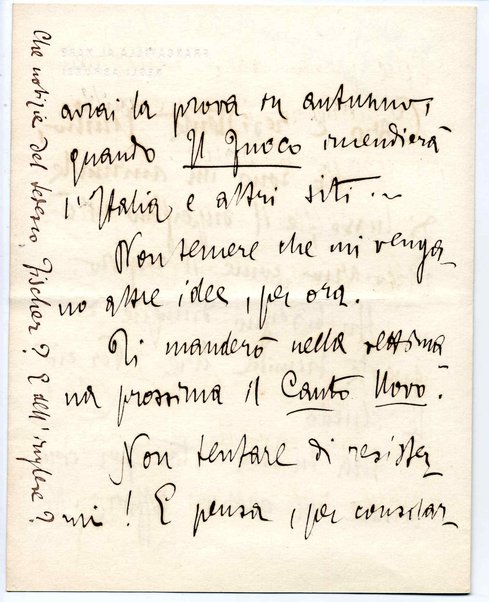 avrai la prova in autunno,
quando Il Fuoco incendierà
l'Italia e altri siti...
Non temere che mi venga-
no altre idee, per ora.
Ti manderò nella settima
na prossima il Canto Novo.
Non tentare di resister
mi! E pensa, per consolar
Che notizie del tedesco, Fischer? E dell'inglese?